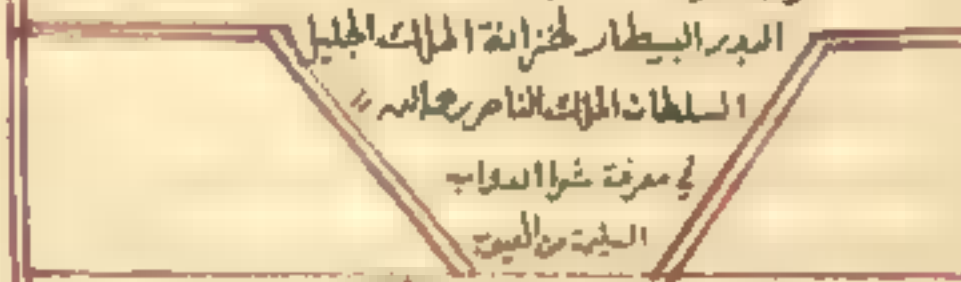 البدر البيطار لخزانة الملك الجليل
السلطان الملك الناصر رحمه الله
في معرفة شرا الدواب
السليمة من العيوب